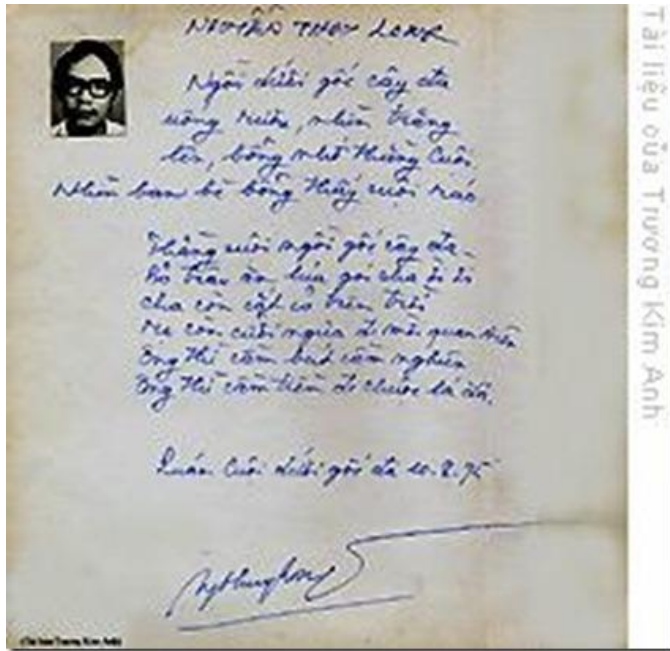 NGUYỄN THỤY LONG
Ngồi dưới gốc cây đa
uống rượu, nhìn trăng
lên, bỗng nhớ thằng Cuội.
Nhìn bạn bè bỗng thấy
Thằng cuội ngồi gốc cây đa
Bỏ trâu ăn lúa gọi cha ời ời
cha còn cắt cỏ trên trời
mẹ còn cưỡi ngựa đi mời quan viên
Ông thì cầm bút cầm nghiên
Ông thì cầm tiền đi chuộc lá đa.
Quán Cuội dưới gốc đa 10.8.75
Ngthuylong
Tài liệu của Trương Kim Anh